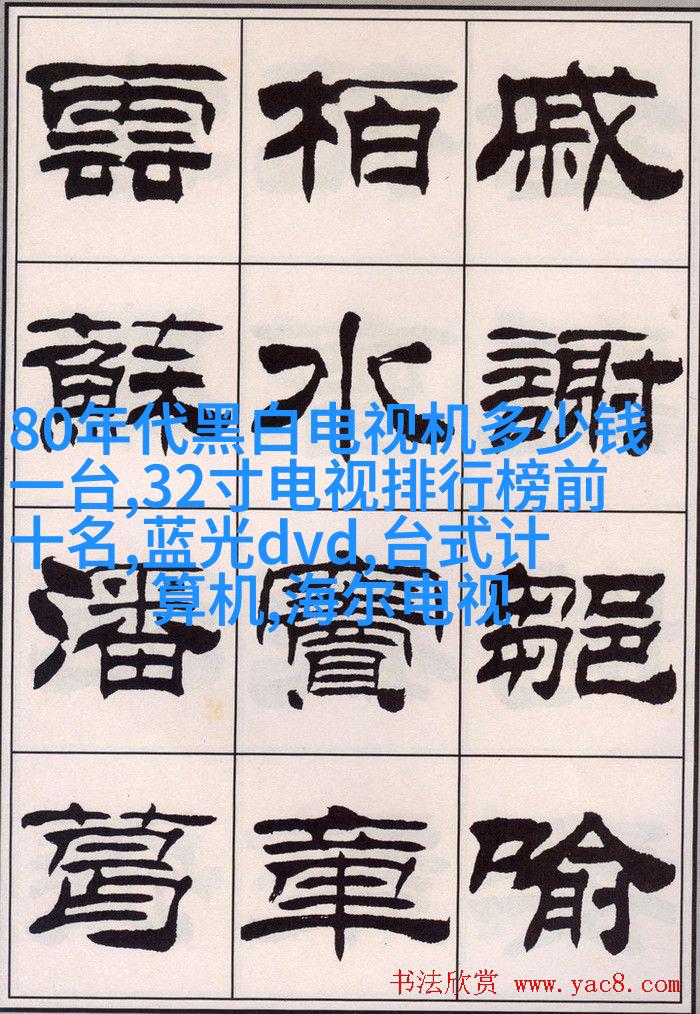 戚謝鄒喻
柏水竇章
雲蘇潘葛
80年代黑白电视机多少钱
一台,32寸电视排行榜前
十名,蓝光dvd,台式计
算机,海尔电视
书法欣赏 www.yac8.com